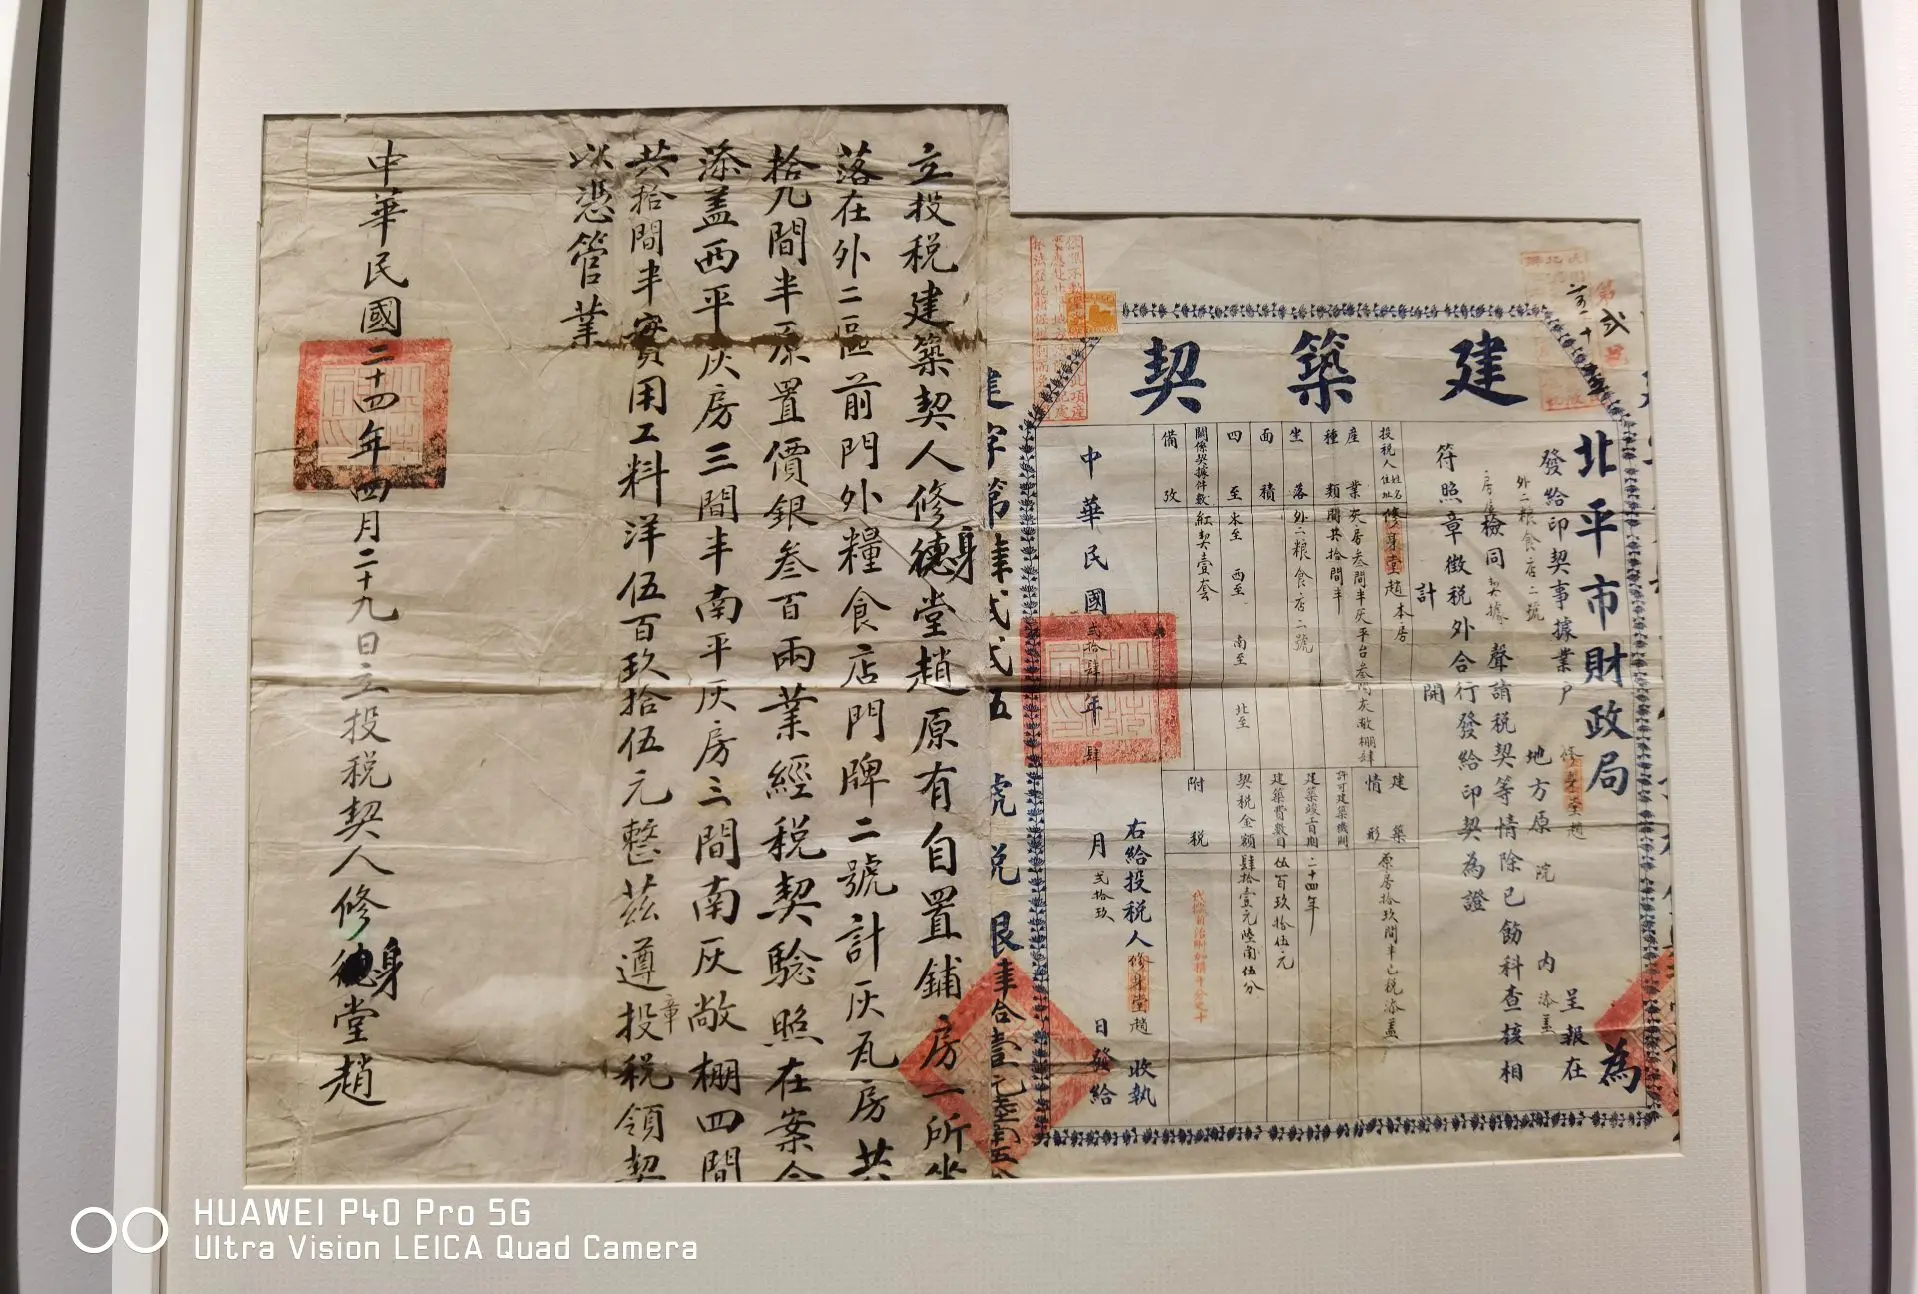 建築契
北平市財政局 為
發給印契事據業戶 修身堂趙 呈報在
外二粮食店二號 地方原 院 內 添蓋
房屋檢同契據聲請税契等情除已飭科查核相
符照章徵税外合行發給印契為證
計開
投税人姓名住址 修身堂趙 本房
產業種類 灰房叁間半灰平台叁間灰敞棚肆間共拾間半
坐落 外二粮食店二號
面積
四至 東至 西至 南至 北至
關係契據件數 紅契壹套
備攷
建築情形 原房拾玖間半已税添蓋
許可建築機關
建築竣工日期 二十四年
建築費數目 伍百玖拾伍元
契税金額 肆拾壹元陸角伍分
附税
右給投税人 修身堂趙 收執
中華民國貳拾肆年肆月貳拾玖日發給
建字第肆弍弍五號税銀肆拾壹元陸角五分
立投税建築契人修身堂趙原有自置鋪房一所坐
落在外二區前門外糧食店門牌二號計灰瓦房共
拾九間半原置價銀叁百兩業經税契驗照在案今
添蓋西平灰房三間半南平灰房三間南灰敞棚四間
共拾間半實用工料洋伍百玖拾伍元整茲遵章投税領契
以憑管業
中華民國二十四年四月二十九日立投税契人修身堂趙
HUAWEI P40 Pro 5G
Ultra Vision LEICA Quad Camera